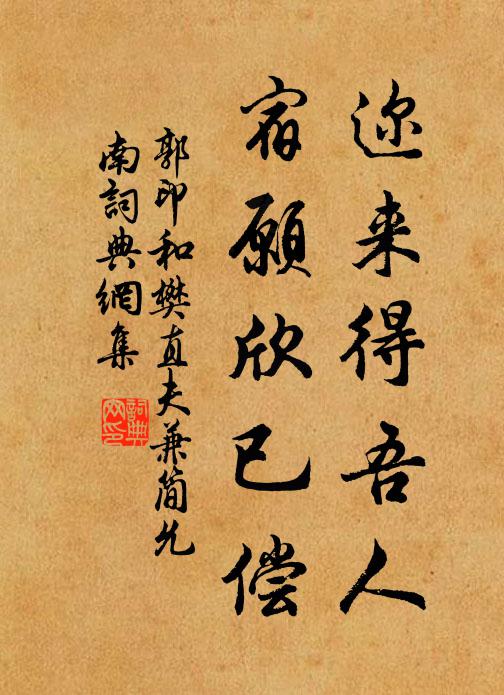 迩来得吾人
宿愿欣已偿
郭印和樊直夫兼简允
南詞典網集
詞典网印